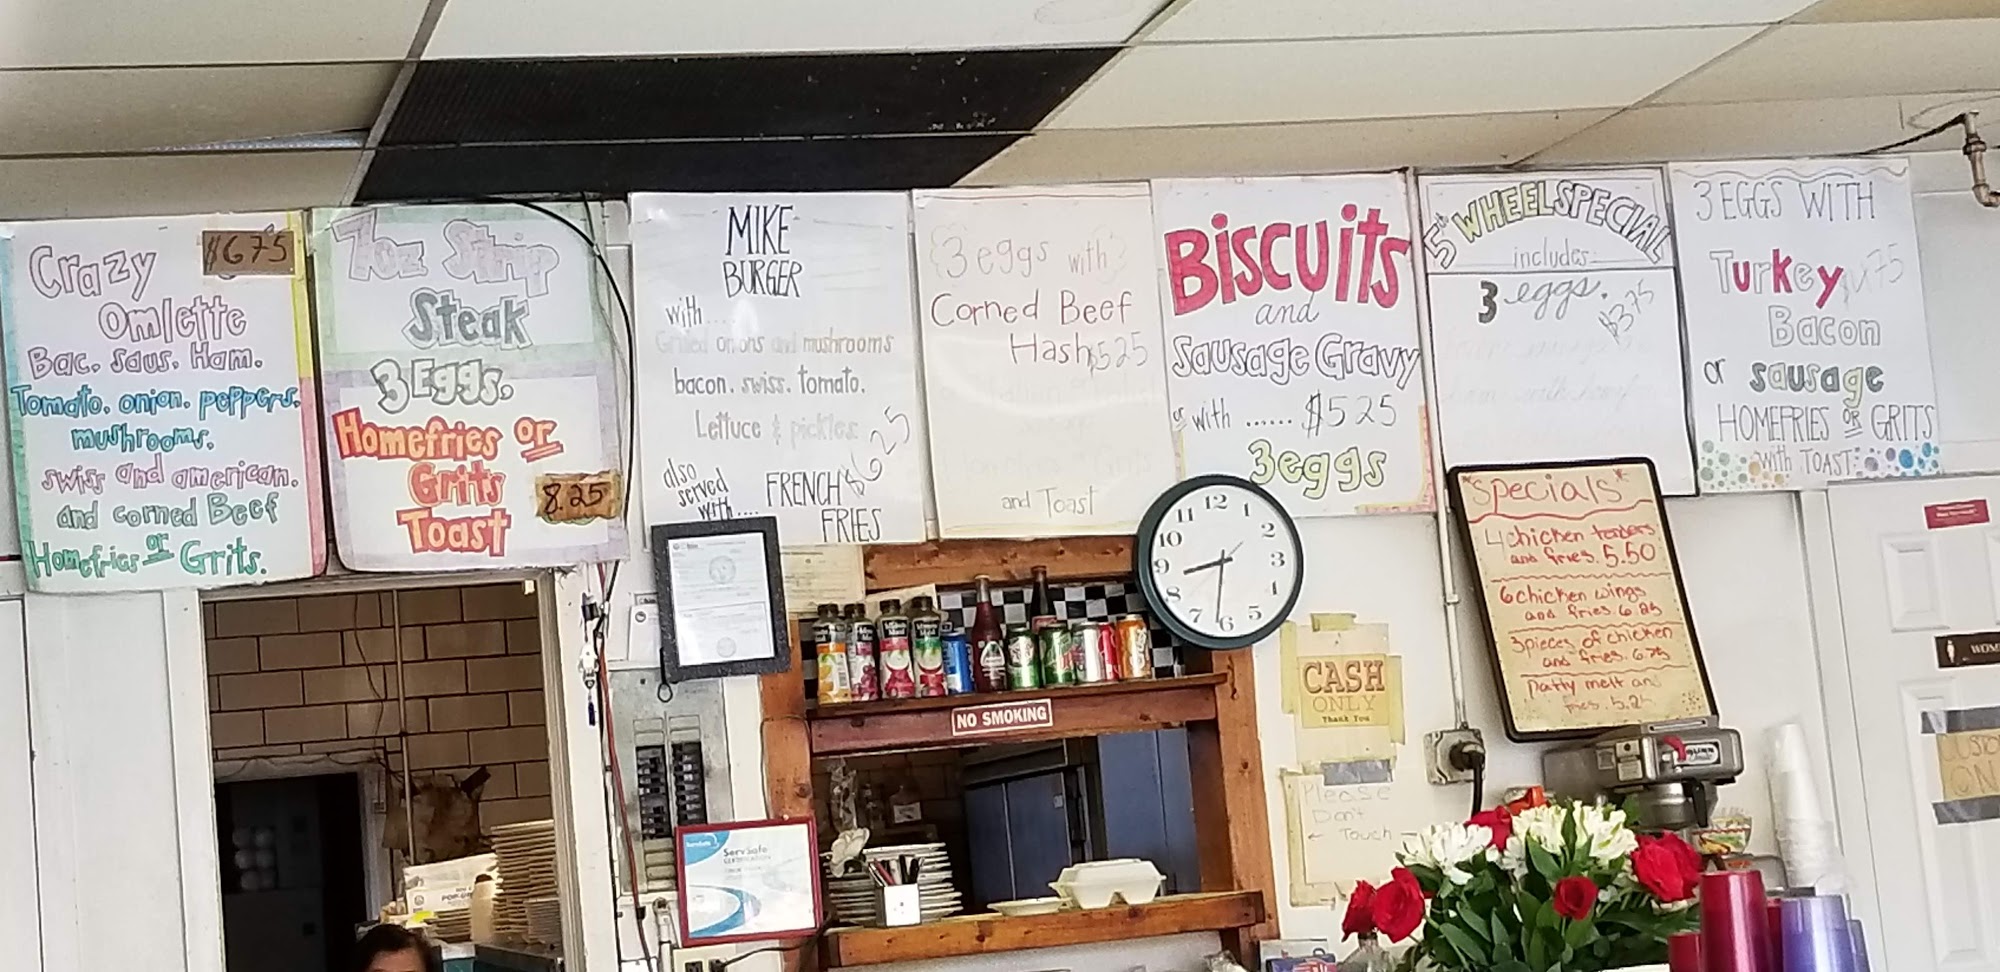 Crazy $6.75
Omlette
Bac. saus. Ham.
Tomato. onion. peppers.
mushrooms.
swiss and american.
and corned Beef
Homefries or Grits.
7oz Strip
Steak
3 Eggs.
Homefries or
Grits
Toast
8.25
MIKE
BURGER
with....
Grilled onions and mushrooms
bacon. swiss. tomato.
Lettuce & pickles
$625
also
served
with....
FRENCH
FRIES
3 eggs with
Corned Beef
Hash $525
and Toast
BISCUITS
and
Sausage Gravy
or with ...... $525
3 eggs
5th WHEEL SPECIAL
includes:
3 eggs.
$375
3 EGGS WITH
Turkey
Bacon
or sausage
HOMEFRIES OR GRITS
with TOAST
12
1
2
3
4
5
6
7
8
9
10
11
*Specials*
4 chicken tenders
and fries. 5.50
6 chicken wings
and fries 6.25
3 pieces of chicken
and fries. 6.75
patty melt an
fries. 5.25
NO SMOKING
CASH
ONLY
Thank You
Please
Don't
← Touch
ServSafe
ServSafe
CERTIFICATION
BUNN
WOM
CUSTO
ON